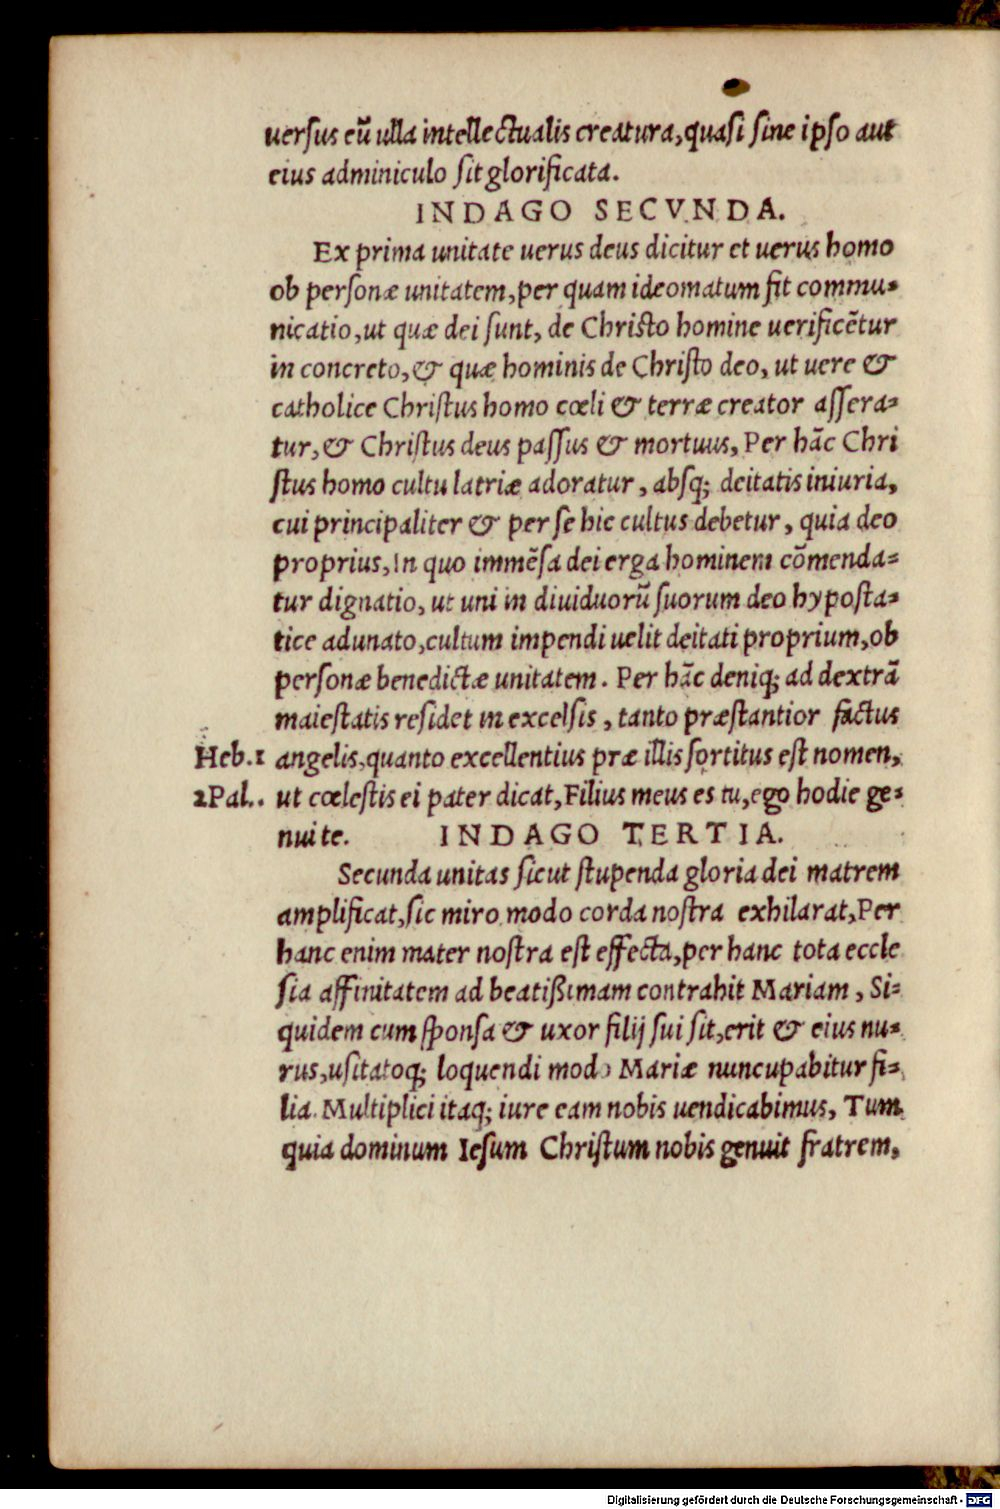 uersus eũ ulla intellectualis creatura, quasi sine ipso aut
eius adminiculo sit glorificata.
INDAGO SECVNDA.
Ex prima unitate uerus deus dicitur et uerus homo
ob personæ unitatem, per quam ideomatum fit commu-
nicatio, ut quæ dei sunt, de Christo homine uerificẽtur
in concreto, & quæ hominis de Christo deo, ut uere &
catholice Christus homo cœli & terræ creator assera-
tur, & Christus deus passus & mortuus, Per hãc Chri
stus homo cultu latriæ adoratur, absq; deitatis iniuria,
cui principaliter & per se hic cultus debetur, quia deo
proprius, In quo immẽsa dei erga hominem cõmenda-
tur dignatio, ut uni in diuiduorũ suorum deo hyposta-
tice adunato, cultum impendi uelit deitati proprium, ob
personæ benedictæ unitatem. Per hãc deniq; ad dextrã
maiestatis residet in excelsis, tanto præstantior factus
Heb.1 angelis, quanto excellentius præ illis sortitus est nomen,
2Pal. ut cœlestis ei pater dicat, Filius meus es tu, ego hodie ge-
nui te. INDAGO TERTIA.
Secunda unitas sicut stupenda gloria dei matrem
amplificat, sic miro modo corda nostra exhilarat, Per
hanc enim mater nostra est effecta, per hanc tota eccle
sia affinitatem ad beatißimam contrahit Mariam, Si-
quidem cum sponsa & uxor filij sui sit, erit & eius nu-
rus, usitatoq; loquendi modo Mariæ nuncupabitur fi-
lia. Multiplici itaq; iure eam nobis uendicabimus, Tum
quia dominum Iesum Christum nobis genuit fratrem,
Digitalisierung gefördert durch die Deutsche Forschungsgemeinschaft - DFG